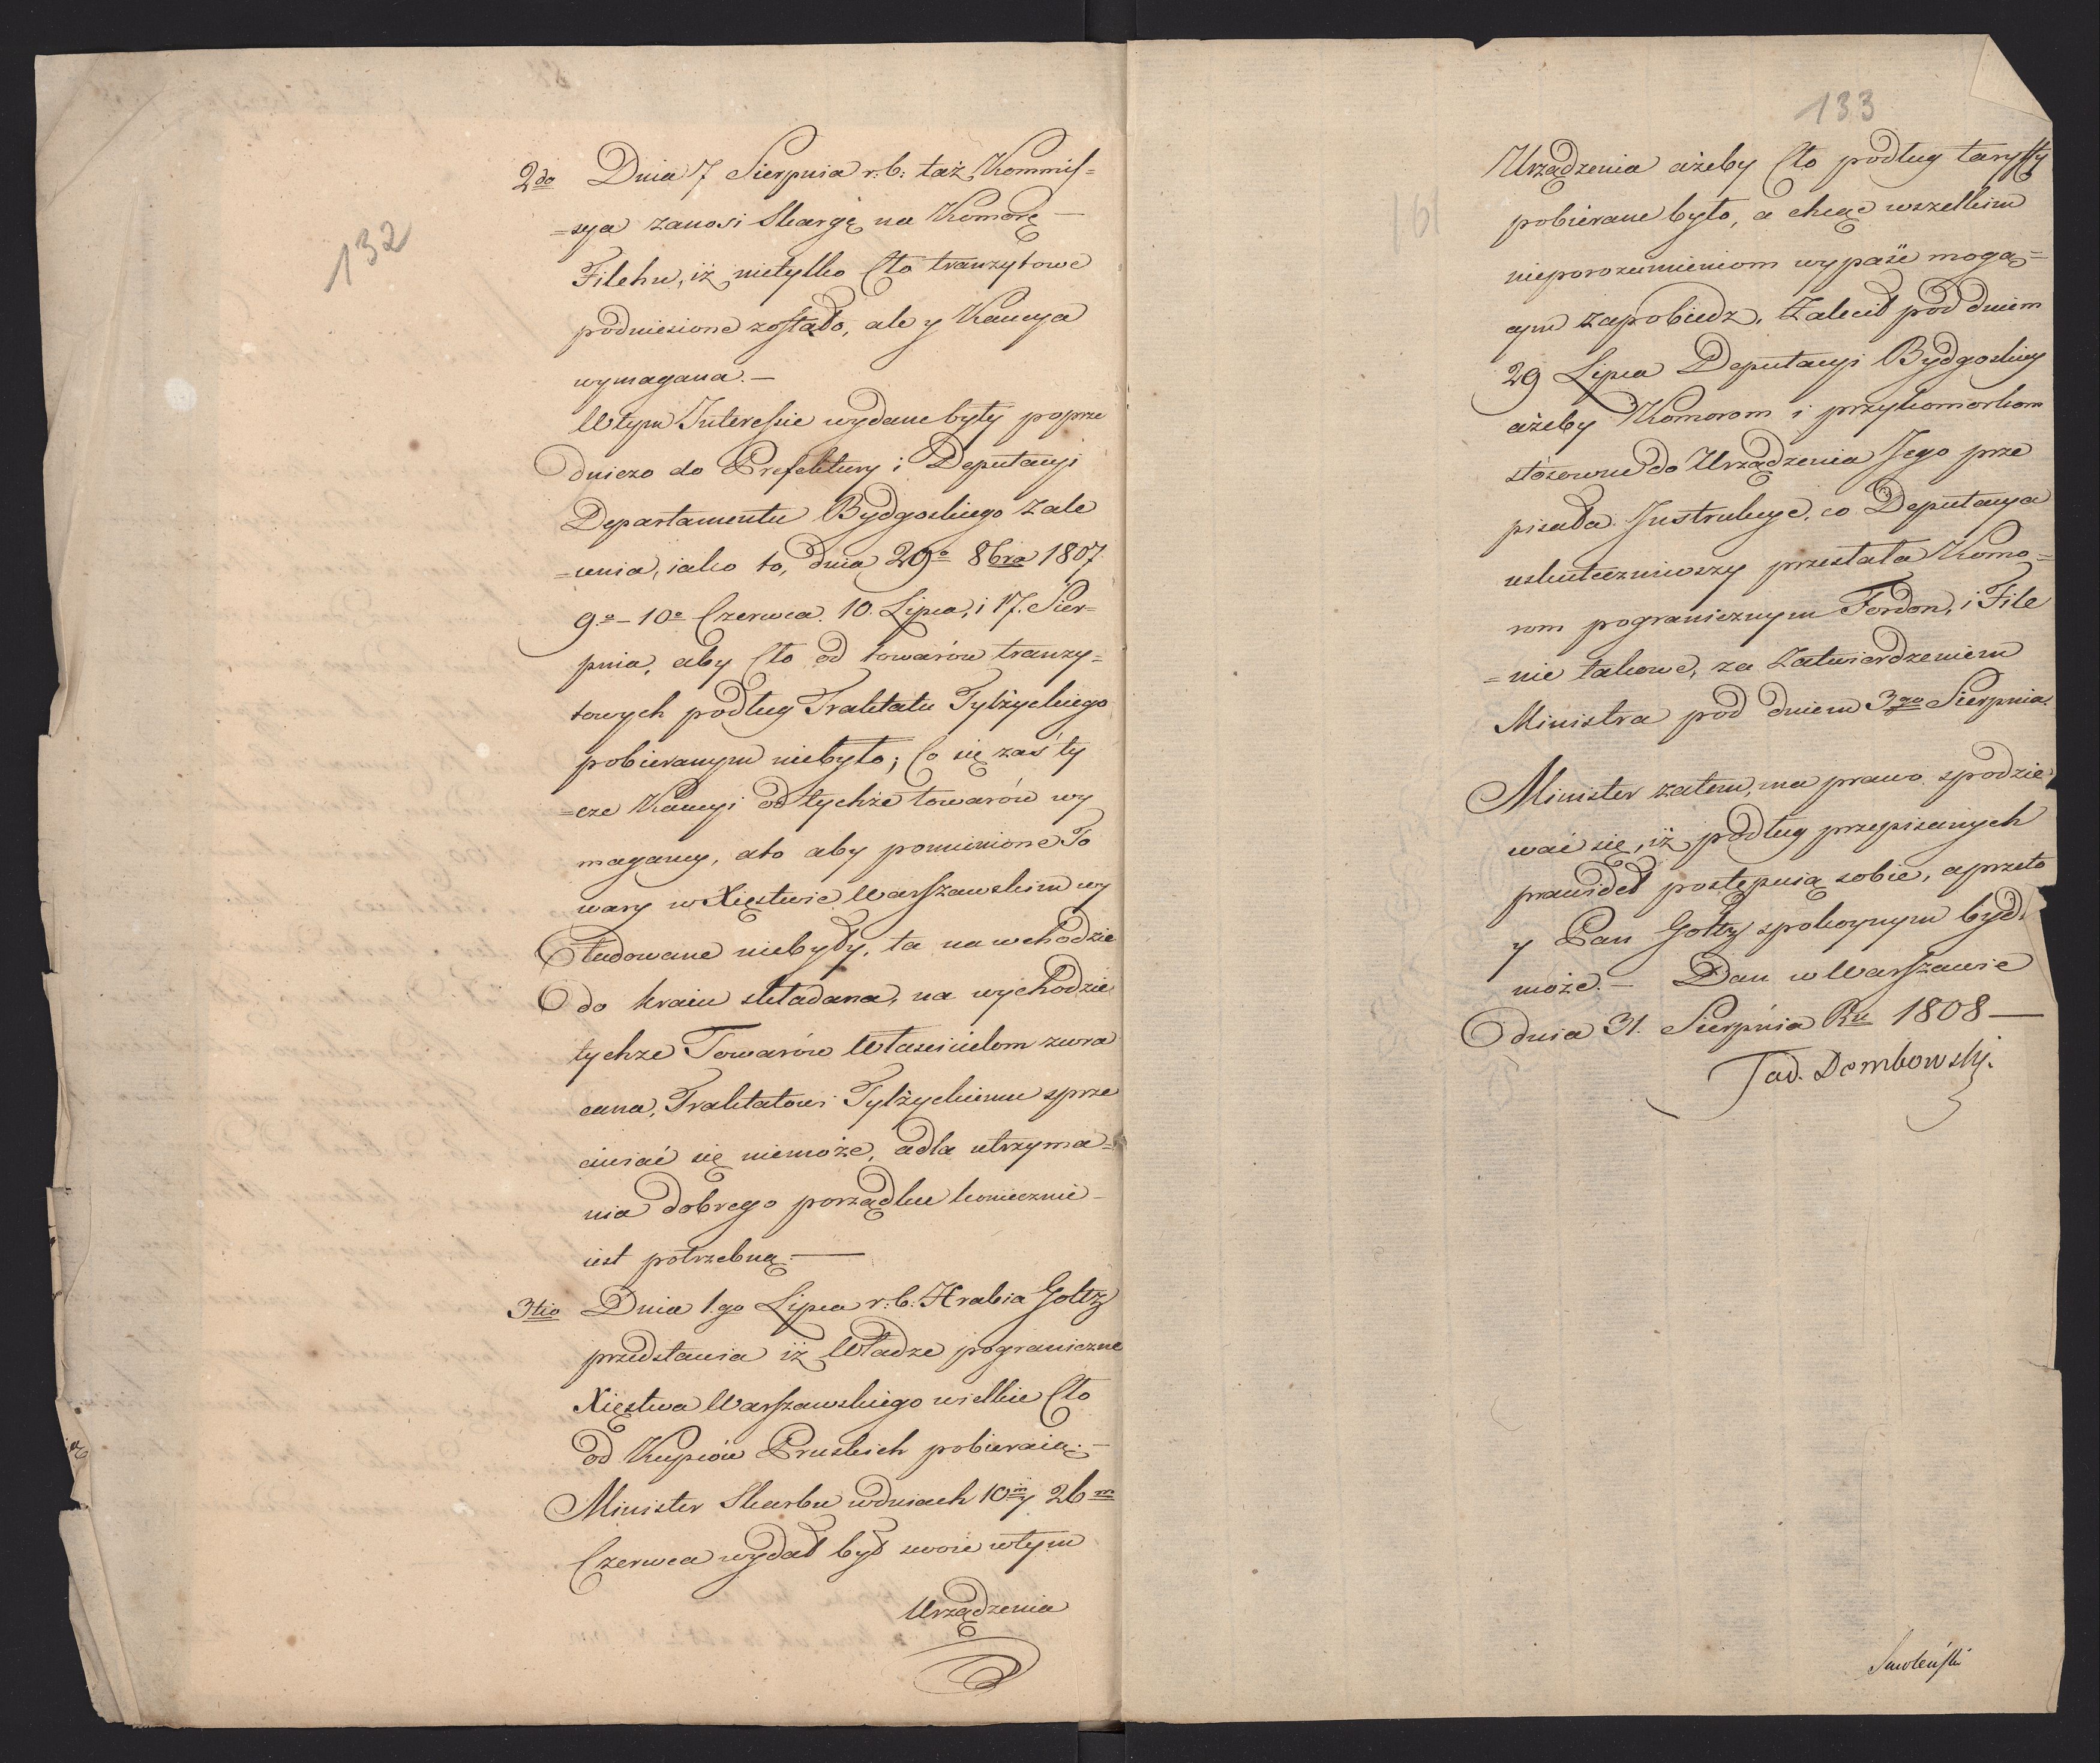 132
2do Dnia 7 Sierpnia r: b: taż Kommis=
=sya zanosi Skargę na Komorę —
Filehn, iż nietylko Cło tranzytowe
podniesione zostało, ale y Kaucya
wymagana. —
W tym Interessie wydane były poprze
dniczo do Prefektury i Deputacyi
Departamentu Bydgoskiego Zale
=cenia, iako to, dnia 29o 8bra 1807
9o – 10o Czerwca. 10. Lipca, i 17. Sier=
pnia, aby Cło od towarów tranzy=
towych podług Traktatu Tylżyckiego
pobieranym niebyło; Co się zaś ty
=cze Kaucyi od tychże towarów wy
maganey, ato aby pomienione To
wary w Xięstwie Warszawskim wy
ładowane niebyły, ta na wchodzie
do kraiu składana, na wychodzie
tychże Towarów Właścicielom zwra
cana, Traktatowi Tylżyckiemu sprze
ciwiać się niemoże, adla utrzyma=
nia dobrego porządku koniecznie
iest potrzebną. —
3tio Dnia 1.go Lipca r: b: Hrabia Goltz
przedstawia iż Władze pograniczne
Xięstwa Warszawskiego wielkie Cło
od Kupców Pruskich pobieraią. —
Minister Skarbu w dniach 10m y 26m
Czerwca wydał był swoie wtym
Urządzenia
133
Urządzenia ażeby Cło podług taryffy
pobierane było, a chcąc wszelkim
nieporozumieniom wypaść mogą=
cym zapobiedz, Zalecił pod dniem
29 Lipca Deputacyi Bydgoskiey
ażeby Komorom i przykomorkom
stosownie do Urządzenia Jego prze
pisała Instrukcye, co Deputacya
uskuteczniwszy przesłała Komo=
rom pogranicznym Fordon, i File
=nie takowe, za Zatwierdzeniem
Ministra pod dniem 3go Sierpnia.
Minister zatem, ma prawo spodzie
wać się, iż podług przepisanych
prawideł postępuią sobie, aprzeto
y Pan Goltz spokoynym bydź
może. — Dan w Warszawie
dnia 31. Sierpnia Ru 1808 —
Tad. Dembowsky.